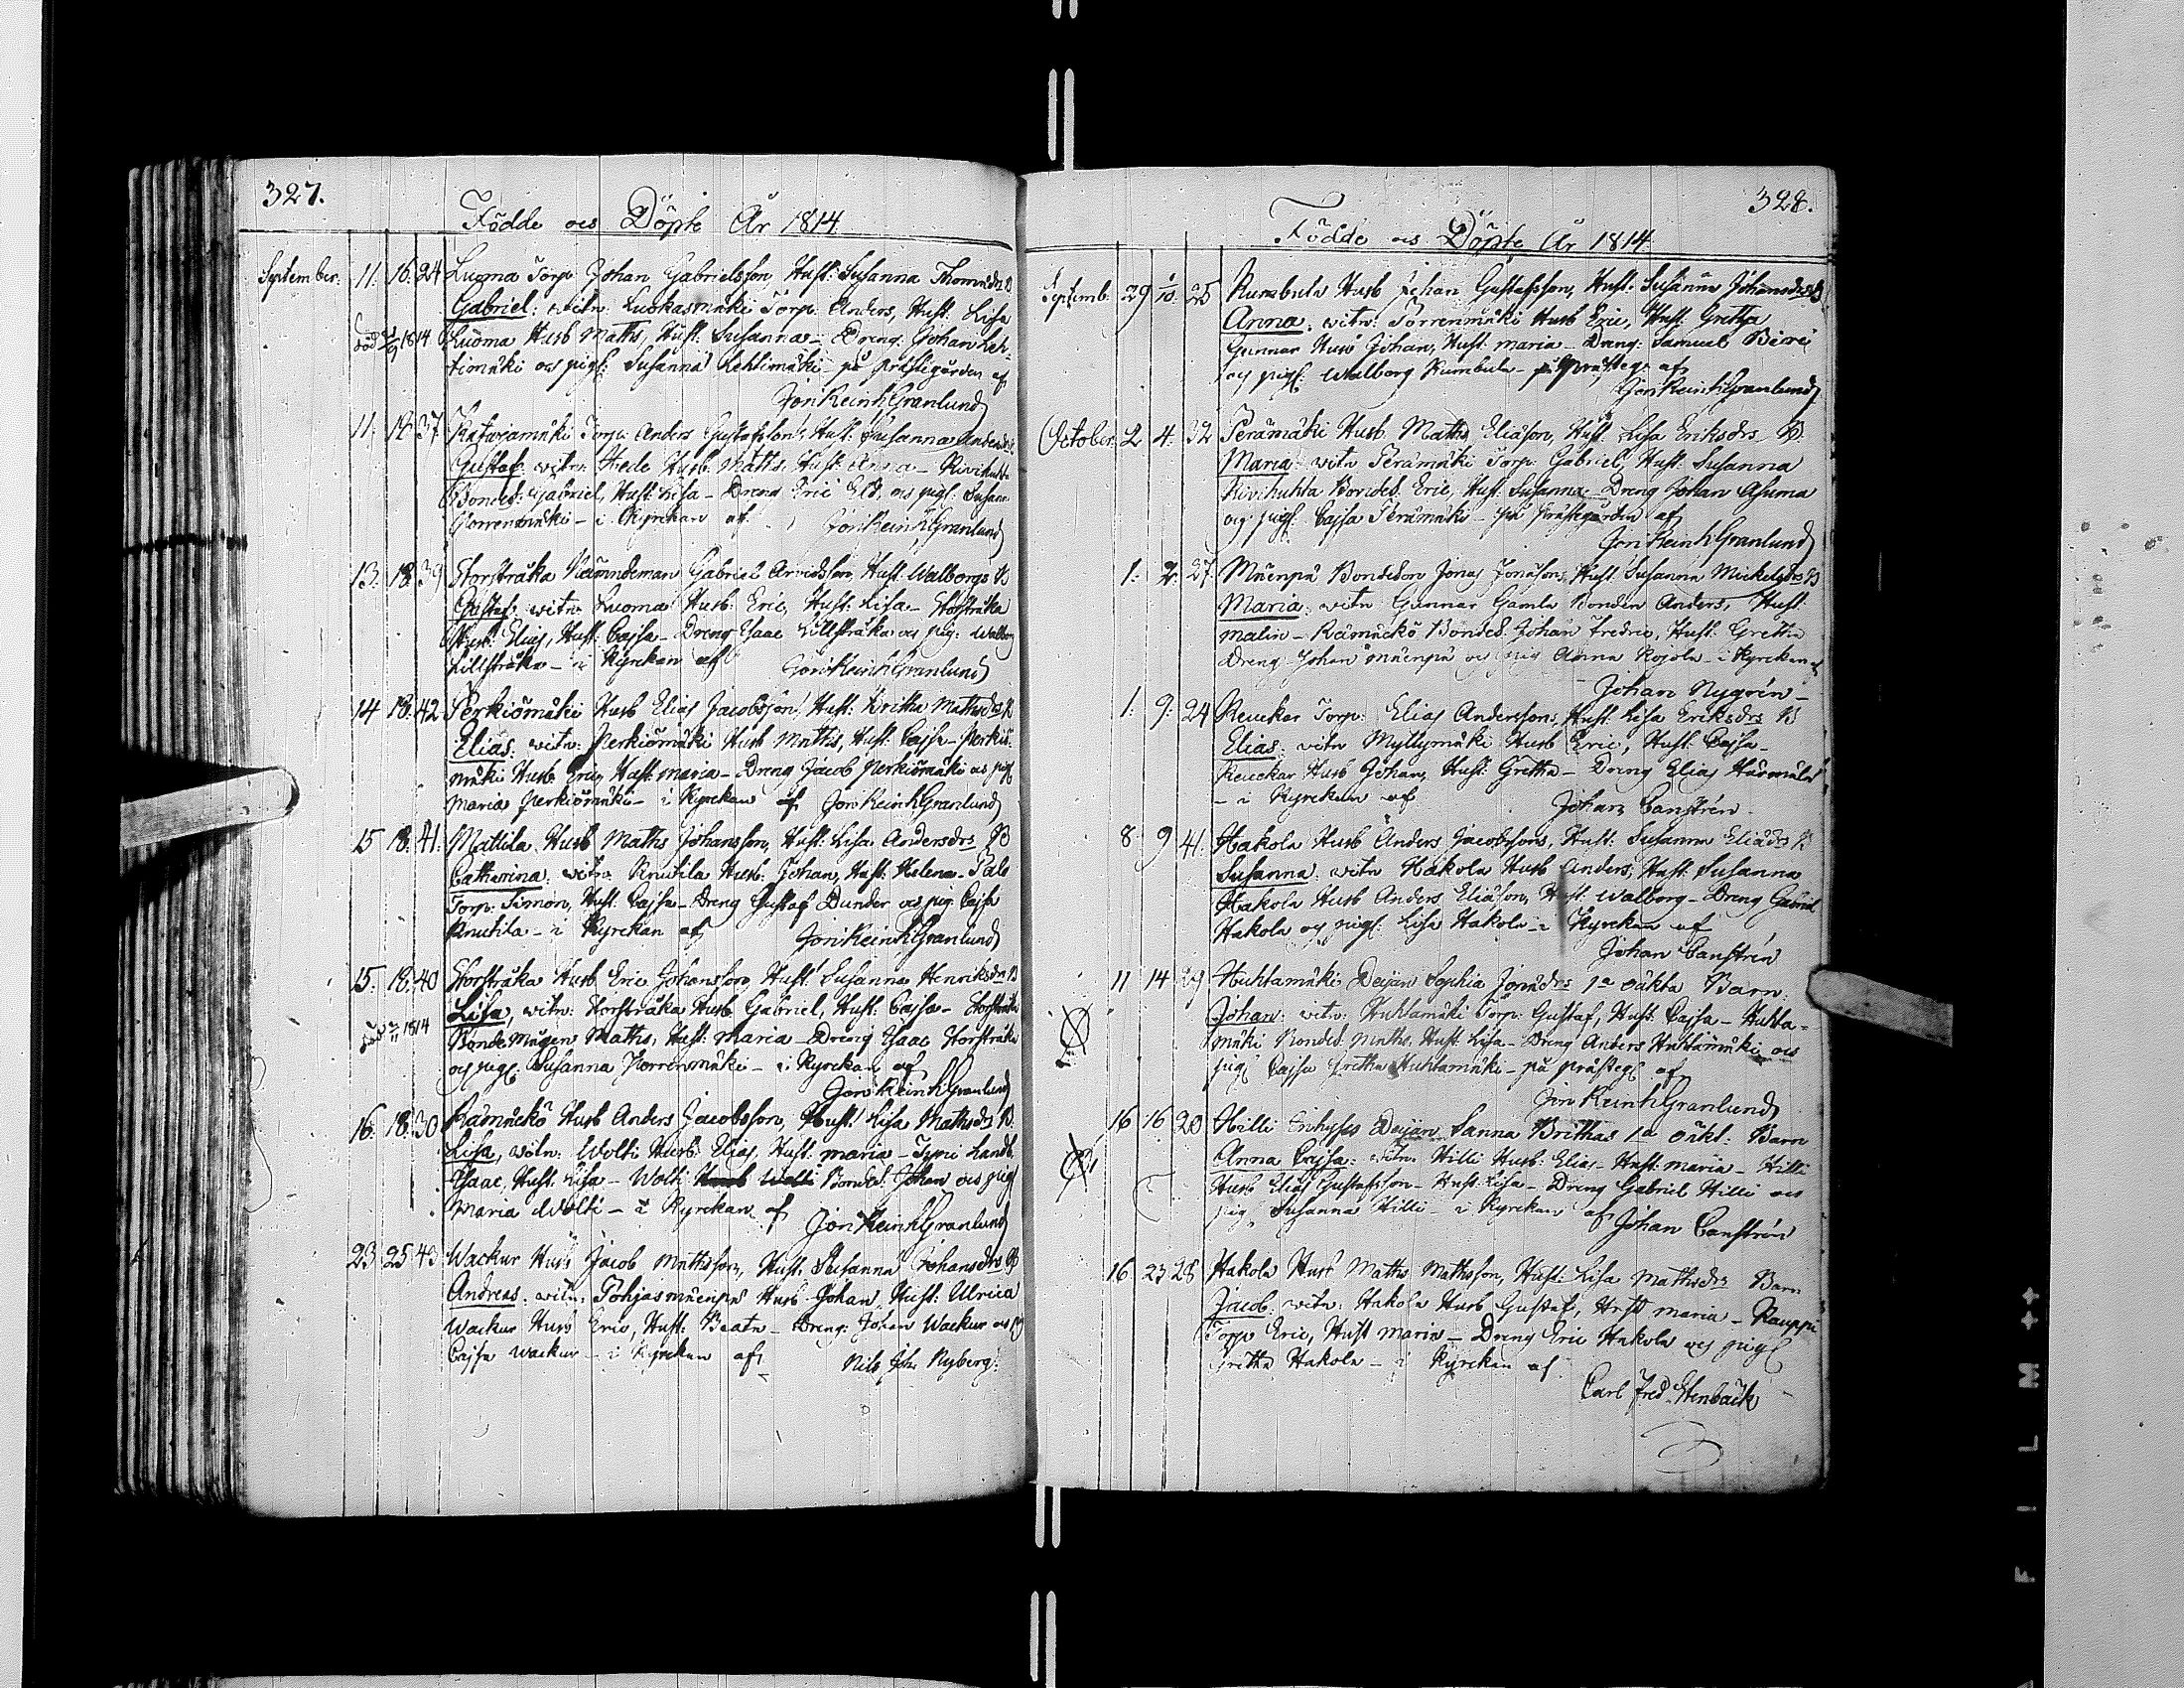 327.
Födde och Döpte År 1814.
September. 11. 16. 24 Luoma Torp: Johan Gabrielsson, Hust: Susanna Thomædr B
Gabriel: witn: Luokasmäki Torp: Anders, Hust: Lisa
död 1814 Luoma Husb Maths, Hust: Susanna – Dreng: Johan Leh-
timäki och pig: Susanna Lehtimäki – på prästegården af
Jon Reinh Granlund
11. 18. 37 Katajamäki Torp: Anders Gustafsson, Hust: Susanna Andersdr
Gustaf: witn: Hede Husb: Maths, Hust: Anna – Kivihuht.
Bonded: Gabriel, Hust: Lisa – Dreng Eric och pig: Susan
Porrenmäki – i Kyrckan af Jon Reinh Granlund
13. 18. 39 Storstråka Nämndeman Gabriel Arvidsson, Hust: Walborgs B
Gustaf: witn: Luoma Husb: Eric, Hust: Lisa – Storstråka
Husb: Elias, Hust: Cajsa – Dreng Isaac Lillstråka och pig: Walborg
Lillstråka – i Kyrckan af Jon Reinh Granlund
14 18. 42 Perkiömäki Husb Elias Jacobsson, Hust: Britha Mathsdr B
Elias: witn: Perkiömäki Husb Maths, Hust: Cajsa – Perkiö-
mäki Husb Eric, Hust: Maria – Dreng Jacob Perkiömäki och pig
Maria Perkiömäki – i Kyrckan af Jon Reinh Granlund
15 18. 41. Mattila Husb Maths Johansson, Hust: Lisa Andersdrs B
Catharina: witn: Knutila Husb: Johan, Hust: Helena – Palo
Torp: Simon, Hust: Cajsa – Dreng Gustaf Dunder och pig Cajsa
Knutila – i Kyrckan af Jon Reinh Granlund
15. 18. 40 Storstråka Husb Eric Johansson, Hust: Susanna Henriksdr B
Lisa, witn: Storstråka Husb Gabriel, Hust: Cajsa – Storstråka
död 1814 Bonde Mågen Maths, Hust: Maria – Dreng Isaac Storstråka
och pig: Susanna Porrenmäki – i Kyrckan af
Jon Reinh Granlund
16. 18. 30 Rämäckö Husb Anders Jacobsson, Hust: Lisa Mathsdr B.
Lisa, witn: Wolti Husb: Elias, Hust: Maria – Tyni Landb.
Isaac, Hust: Lisa – Wolti Husb Wolti Bonded: Johan och pig
Maria Wolti – i Kyrckan af Jon Reinh Granlund
23 25 43 Wackur Husb Jacob Mathsson, Hust: Susanna Johansdrs B
Andreas: witn: Pohjasmäenpä Husb: Johan, Hust: Ulrica
Wackur Husb Eric, Hust: Beata – Dreng: Johan Wackur och pig
Cajsa Wackur – i Kyrckan af Nils Joh: Nyberg.
328.
Födde och Döpte År 1814.
Septemb. 29 1/10 25 Rumbula Husb Johan Gustafsson, Hust: Susanna Johansdrs B
Anna: witn: Porrenmäki Husb Eric, Hust: Gretha
Gunnar Husb Johan, Hust: Maria – Dreng: Samuel
och pig: Walborg Rumbula – på Prästeg: af
Jon Reinh Granlund
October. 2 4. 32 Perämäki Husb. Maths Eliasson, Hust: Lisa Eriksdrs B.
Maria: witn Perämäki Torp: Gabriel, Hust: Susanna
Kivihuhta Bonded. Eric, Hust: Susanna – Dreng Johan Asuma
och pig: Cajsa Perämäki – på prästegården af
Jon Reinh Granlund
1. 2. 27. Mäenpä Bondeson Jonas Jonasson, Hust: Susanna Mickelsdrs B
Maria: witn Gunnar Gamla Bonden Anders, Hust:
Malin – Rämäckö Bonded. Johan Fredric, Hust: Gretha
Dreng Johan Mäenpä och pig Anna Kojola – i Kyrckan af
Johan Nygrén –
1. 9. 24 Reuckar Torp: Elias Andersson, Hust: Lisa Eriksdrs B
Elias: witn Myllymäki Husb Eric, Hust: Cajsa –
Reuckar Husb Johan, Hust: Gretha – Dreng Elias Härmälä
– i Kyrckan af Johan Canstrén
8. 9 41. Hakola Husb Anders Jacobssons, Hust: Susanna Eliædrs B
Susanna: witn Hakola Husb Anders, Hust: Susanna
Hakola Husb Anders Eliasson, Hust: Walborg – Dreng Gabriel
Hakola och pig: Lisa Hakola – i Kyrckan af
Johan Canstrén
11 14 29 Huhtamäki Deijan Sophia Jonædrs 1a oäkta Barn
Johan: witn: Huhtamäki Torp: Gustaf, Hust: Cajsa – Huhta-
mäki Bonded. Maths, Hust: Lisa – Dreng Anders Huhtamäki och
pig Cajsa Gretha Huhtamäki – på prästeg: af
Jon Reinh Granlund
16 16 20 Hilli Inhyses Deijan Sanna Brithas 1a oäkt: Barn
Anna Cajsa: witn: Hilli Husb: Elias – Hust: Maria – Hilli
Husb Elias Gustafsson – Hust: Lisa – Dreng Gabriel Hilli och
pig Susanna Hilli – i Kyrckan af Johan Canstrén
16 23 28 Hakola Husb Maths Mathsson, Hust: Lisa Mathsdrs Barn
Jacob: witn: Hakola Husb Gustaf, Hust Maria – Kauppi
Torp Eric, Hust Maria – Dreng Eric Hakola och pig
Gretha Hakola – i Kyrckan af
Carl Fred Stenbäck
FILM